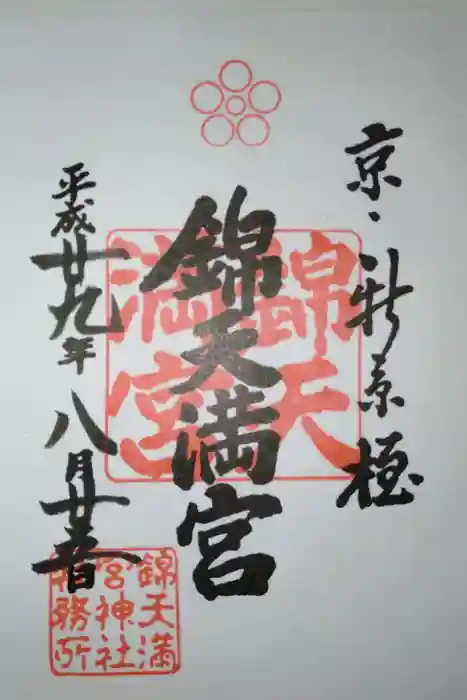 京・新京極
錦天満宮
平成廿九年八月廿五日
錦天
満宮
錦天満
宮神社
社務所